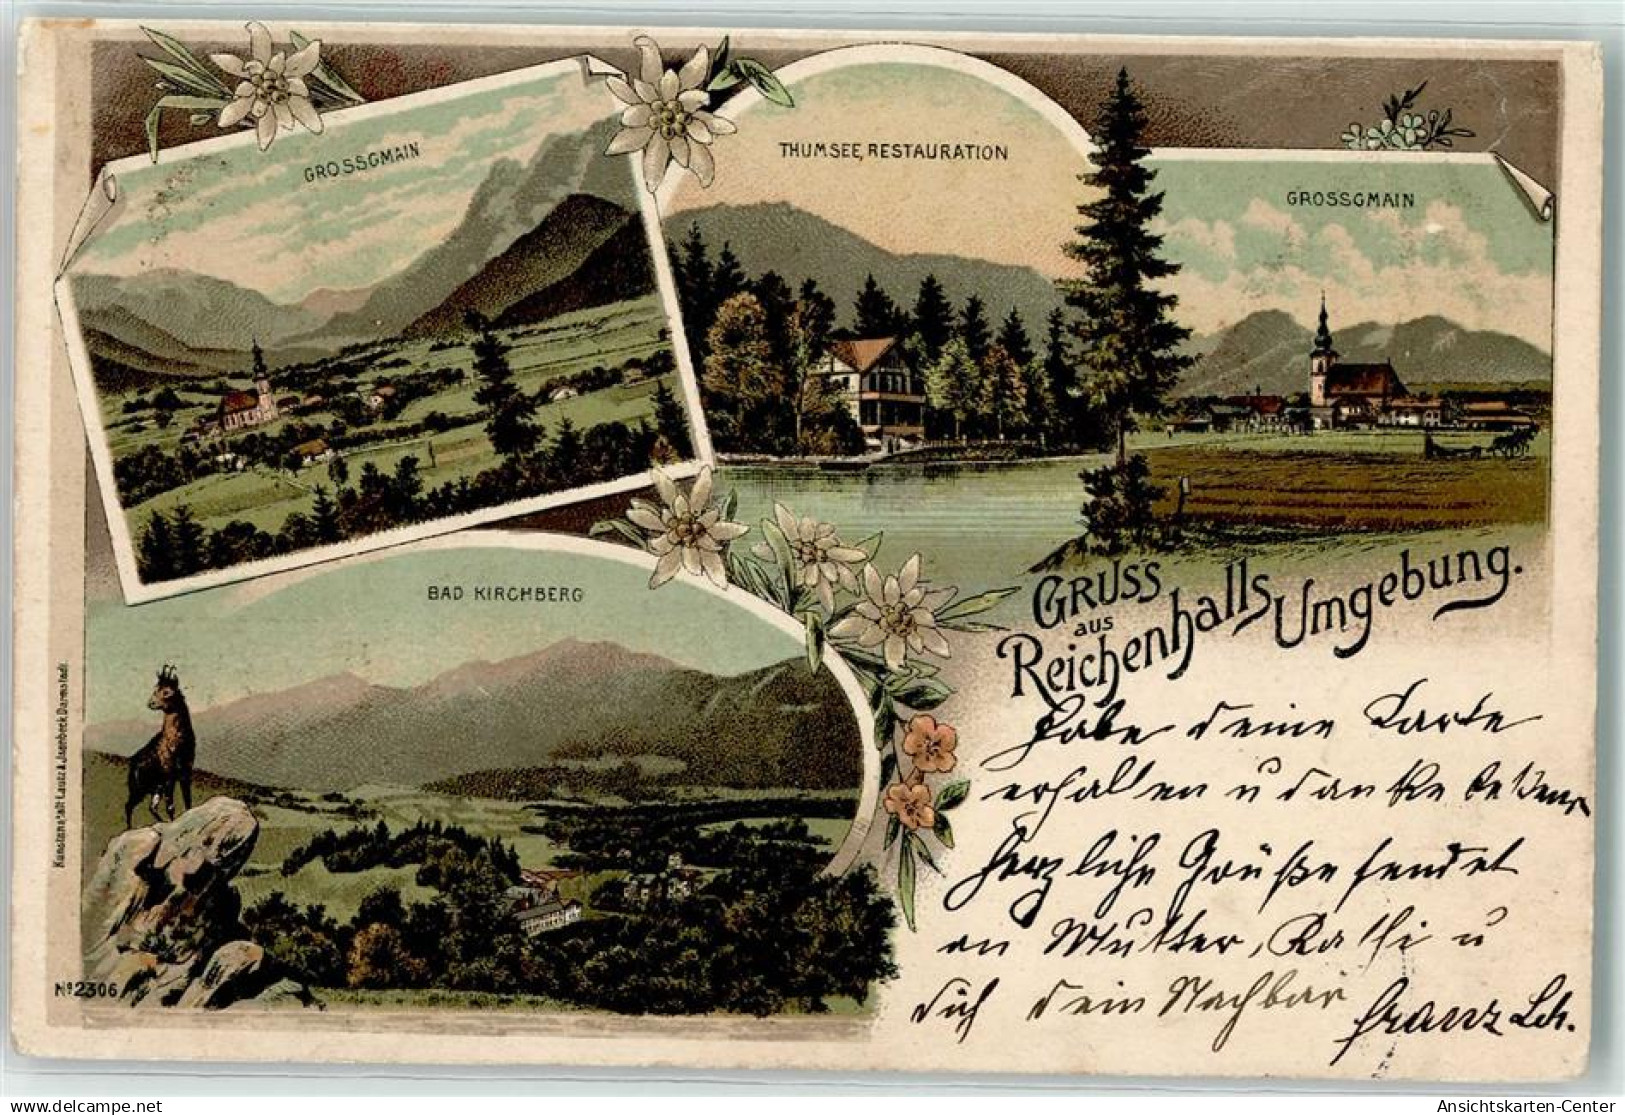 GROSSGMAIN
THUMSEE, RESTAURATION
GROSSGMAIN
BAD KIRCHBERG
GRUSS
aus
Reichenhalls Umgebung.
Habe deine Karte
erhalten u danke bestens
Herzliche Grüße sendet
an Mutter, Kathi u
dich dein Nachbar
Franz Sch.
Kunstanstalt Lautz & Isenbeck, Darmstadt.
Nº 2306
delcampe.net
Ansichtskarten-Center